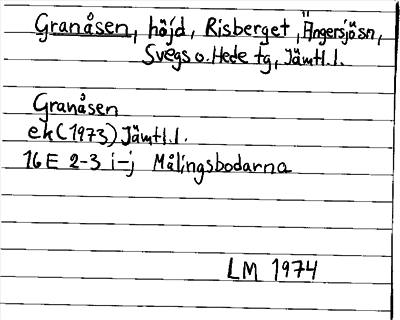 Granåsen, höjd, Risberget, Ängersjö sn,
Svegs o. Hede tg, Jämtl.l.
Granåsen
ek (1973) Jämtl.l.
16E 2-3 i-j Målingsbodarna
LM 1974